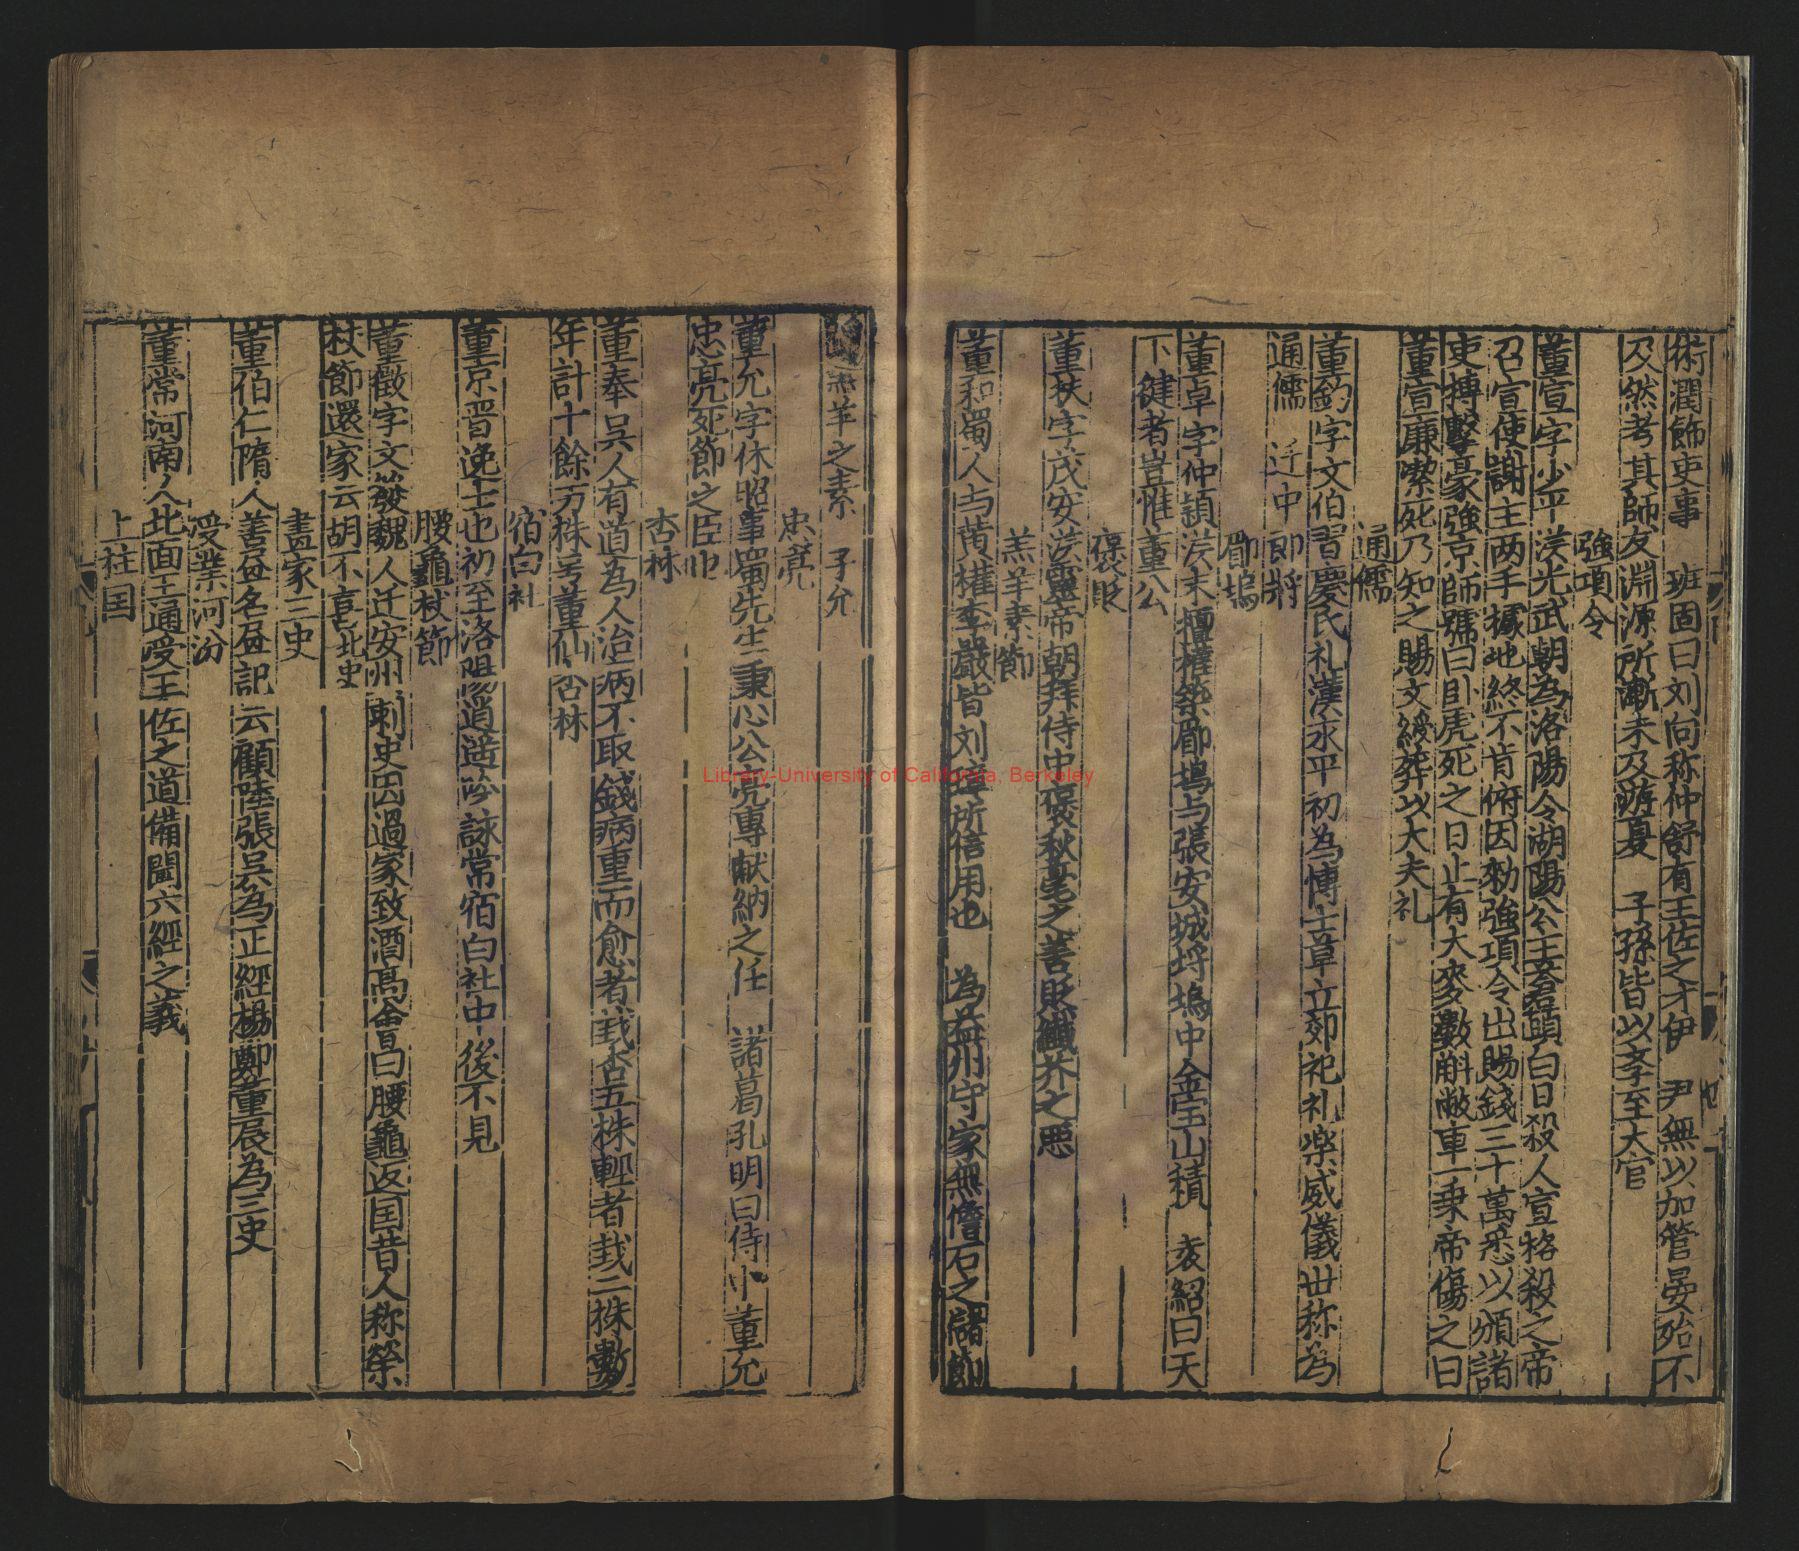 術潤飾吏事 班固曰刘向称仲舒有王佐之才伊 尹無以加管晏殆不
及然考其師友淵源所漸未及游夏 子孫皆以孝至大官
強項令
董宣字少平汉光武朝為洛陽令湖陽公主蒼頭白日殺人宣格殺之帝
召宣使謝主两手據地終不肯俯因勑強項令出賜錢三十萬悉以頒諸
吏搏擊豪強京師號曰卧虎死之日止有大麥數斛敝車一乗帝傷之曰
董宣廉潔死乃知之賜艾綬葬以大夫礼
通儒
董鈞字文伯習慶氏礼漢永平初為博士章立郊祀礼楽威儀世称為
通儒 迁中郎將
郿塢
董卓字仲頴汉末擅權築郿塢与張安城埒塢中金宝山積 袁紹曰天
下健者豈惟董公
褒貶
董扶字茂安汉靈帝朝拜侍中褒秋毫之善貶纖芥之悪
羔羊素節
董和蜀人与黄權李嚴皆刘璋所信用也 為益州守家無儋石之儲節
羔羊之素 子允
忠亮
董允字休昭事蜀先生秉心公亮專献納之任 諸葛孔明曰侍中董允
忠亮死節之臣也
杏林
董奉吳人有道為人治病不取錢病重而愈者栽杏五株輕者栽二株數
年計十餘万株号董仙杏林
宿白社
董京晋逸士也初至洛陽逍遥吟詠常宿白社中後不見
腰龜杖節
董徴字文發魏人迁安州刺史因過家致酒髙會曰腰龜返国昔人称榮
杖節還家云胡不喜北史
畫家三史
董伯仁隋人善畫名畫記云顧陸張吳為正經楊鄭董展為三史
受業河汾
董常河南人北面王通受王佐之道備聞六經之義
上柱国